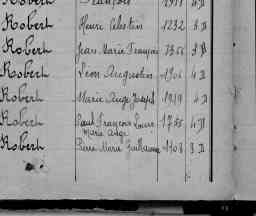 Robert François
Robert Henri Célestin 1232 3 D
Robert Jean Marie François 3 D
Robert Léon Augustin 1906 4 D
Robert Marie Ange Joseph 1919 4 D
Robert Paul François Louis 1755 4 D
Marie Ange
Robert Pierre Marie Guillaume 1708 3 D